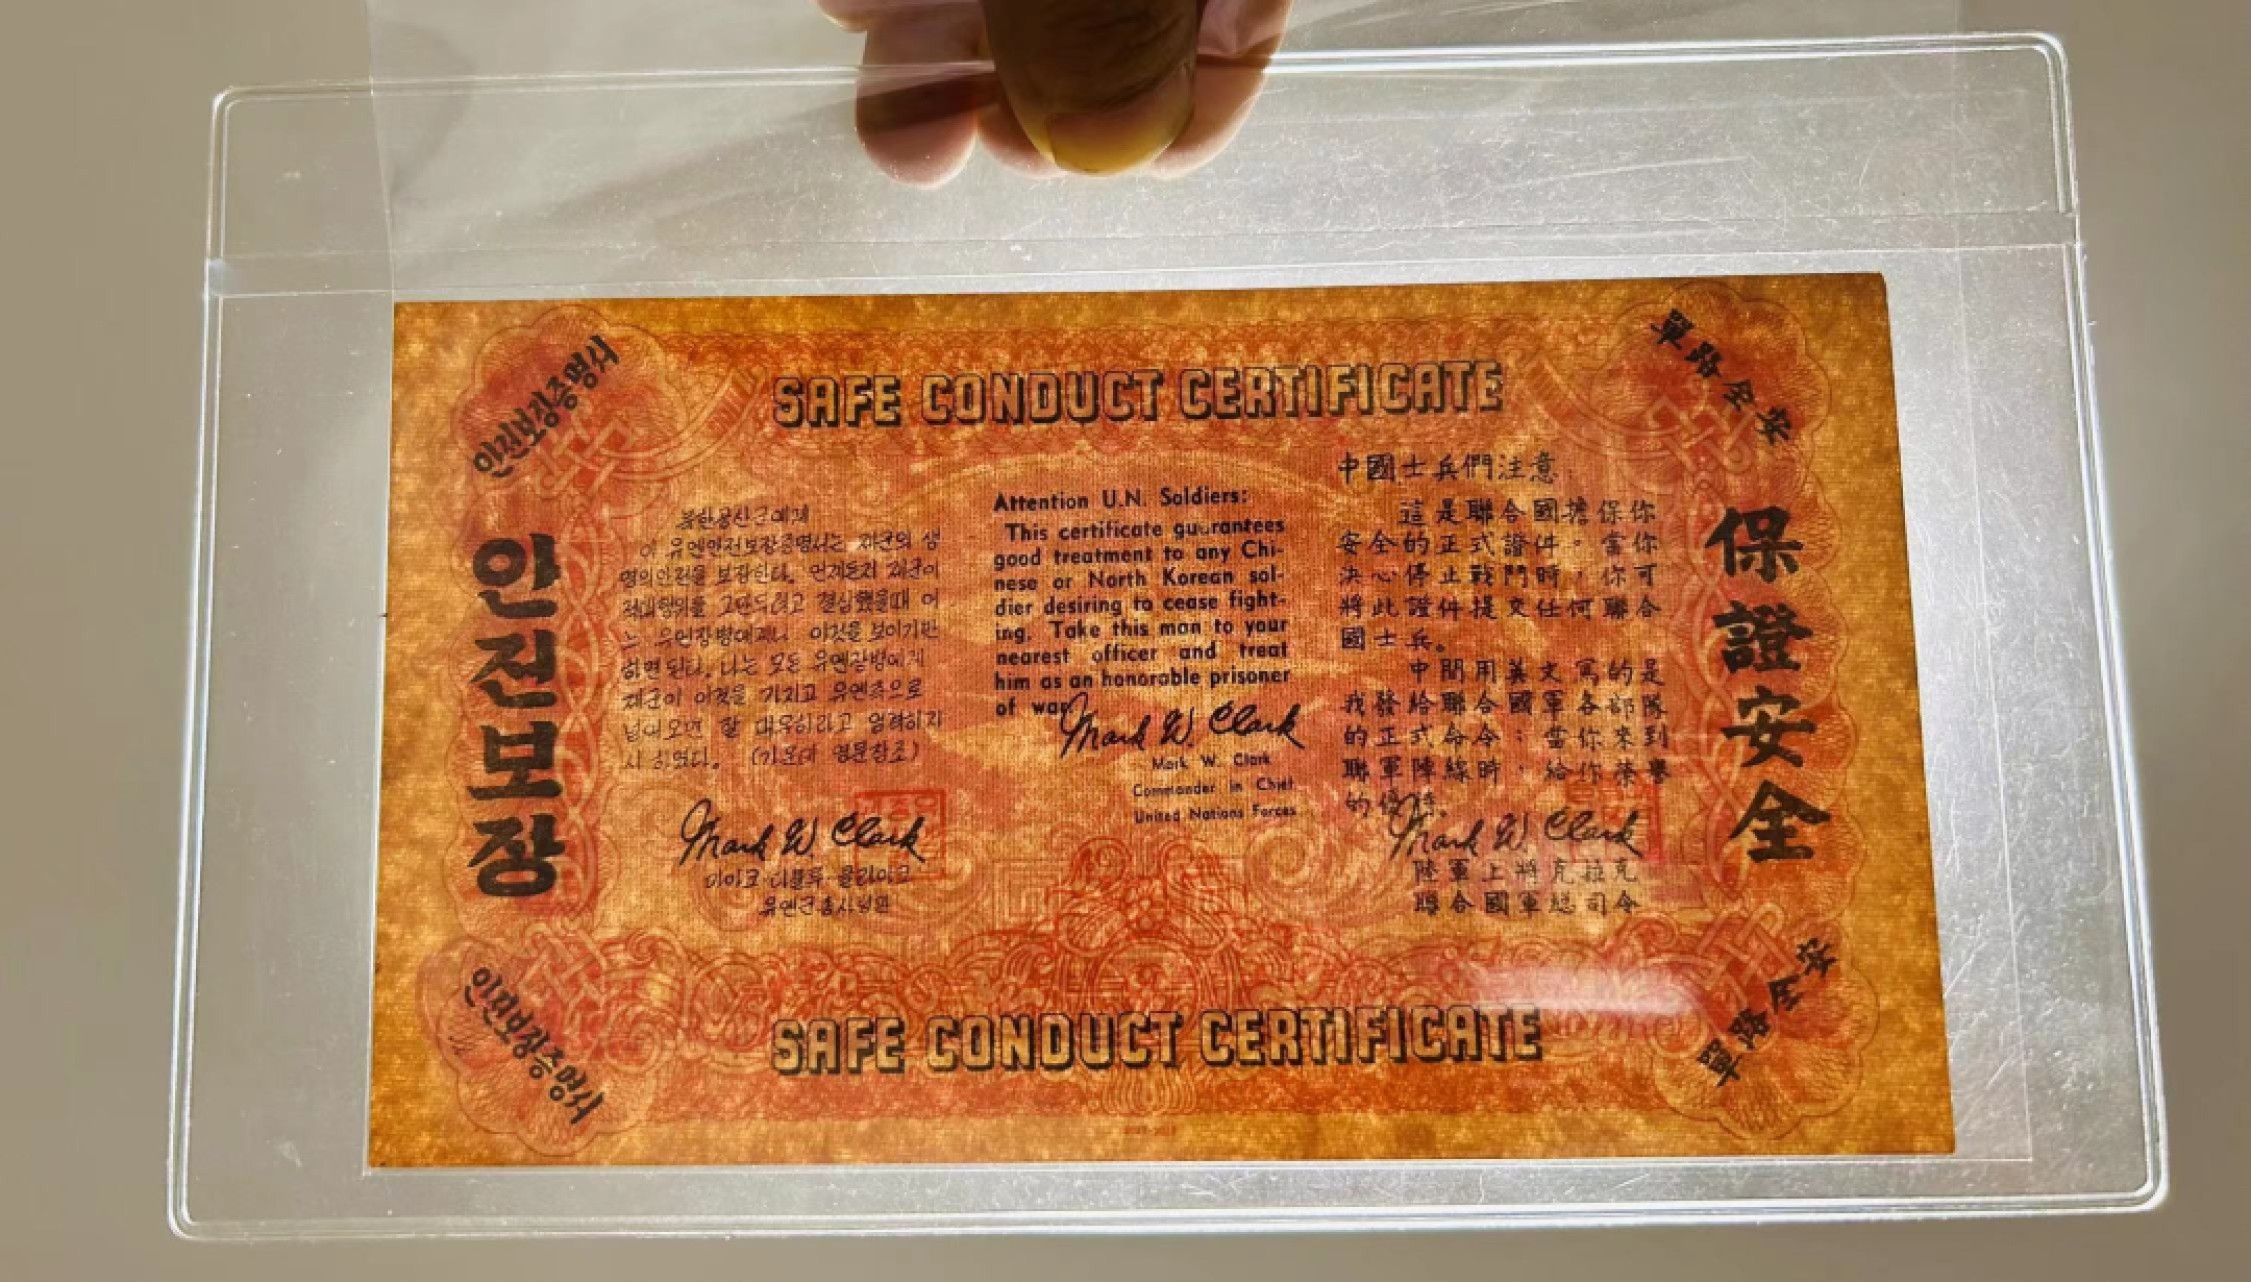 SAFE CONDUCT CERTIFICATE
안전보장증명서
單路全安
안전보장
북한공산군에게
이 유엔안전보장증명서는 제군의 생
명의안전을 보장한다. 언제든지 제군이
적대행위를 그만두려고 결심했을때 어
느 유엔장병에게나 이것을 보이기만
하면 된다. 나는 모든 유엔장병에게
제군이 이것을 가지고 유엔측으로
넘어오면 잘 대우하라고 명령하
였다. (가운데 영문참조)
Mark W. Clark
마아크·더블유·클라아크
유엔군총사령관
Attention U.N. Soldiers:
This certificate guarantees
good treatment to any Chi-
nese or North Korean sol-
dier desiring to cease fight-
ing. Take this man to your
nearest officer and treat
him as an honorable prisoner
of war
Mark W. Clark
Mark W. Clark
Commander in Chief
United Nations Forces
中國士兵們注意
這是聯合國擔保你
安全的正式證件。當你
決心停止戰鬥時，你可
將此證件提交任何聯合
國士兵。
中間用英文寫的是
我發給聯合國軍各部隊
的正式命令：當你來到
聯軍陣線時，給你榮譽
的優待。
Mark W. Clark
陸軍上將克拉克
聯合國軍總司令
保證安全
안전보장증명서
SAFE CONDUCT CERTIFICATE
單路全安